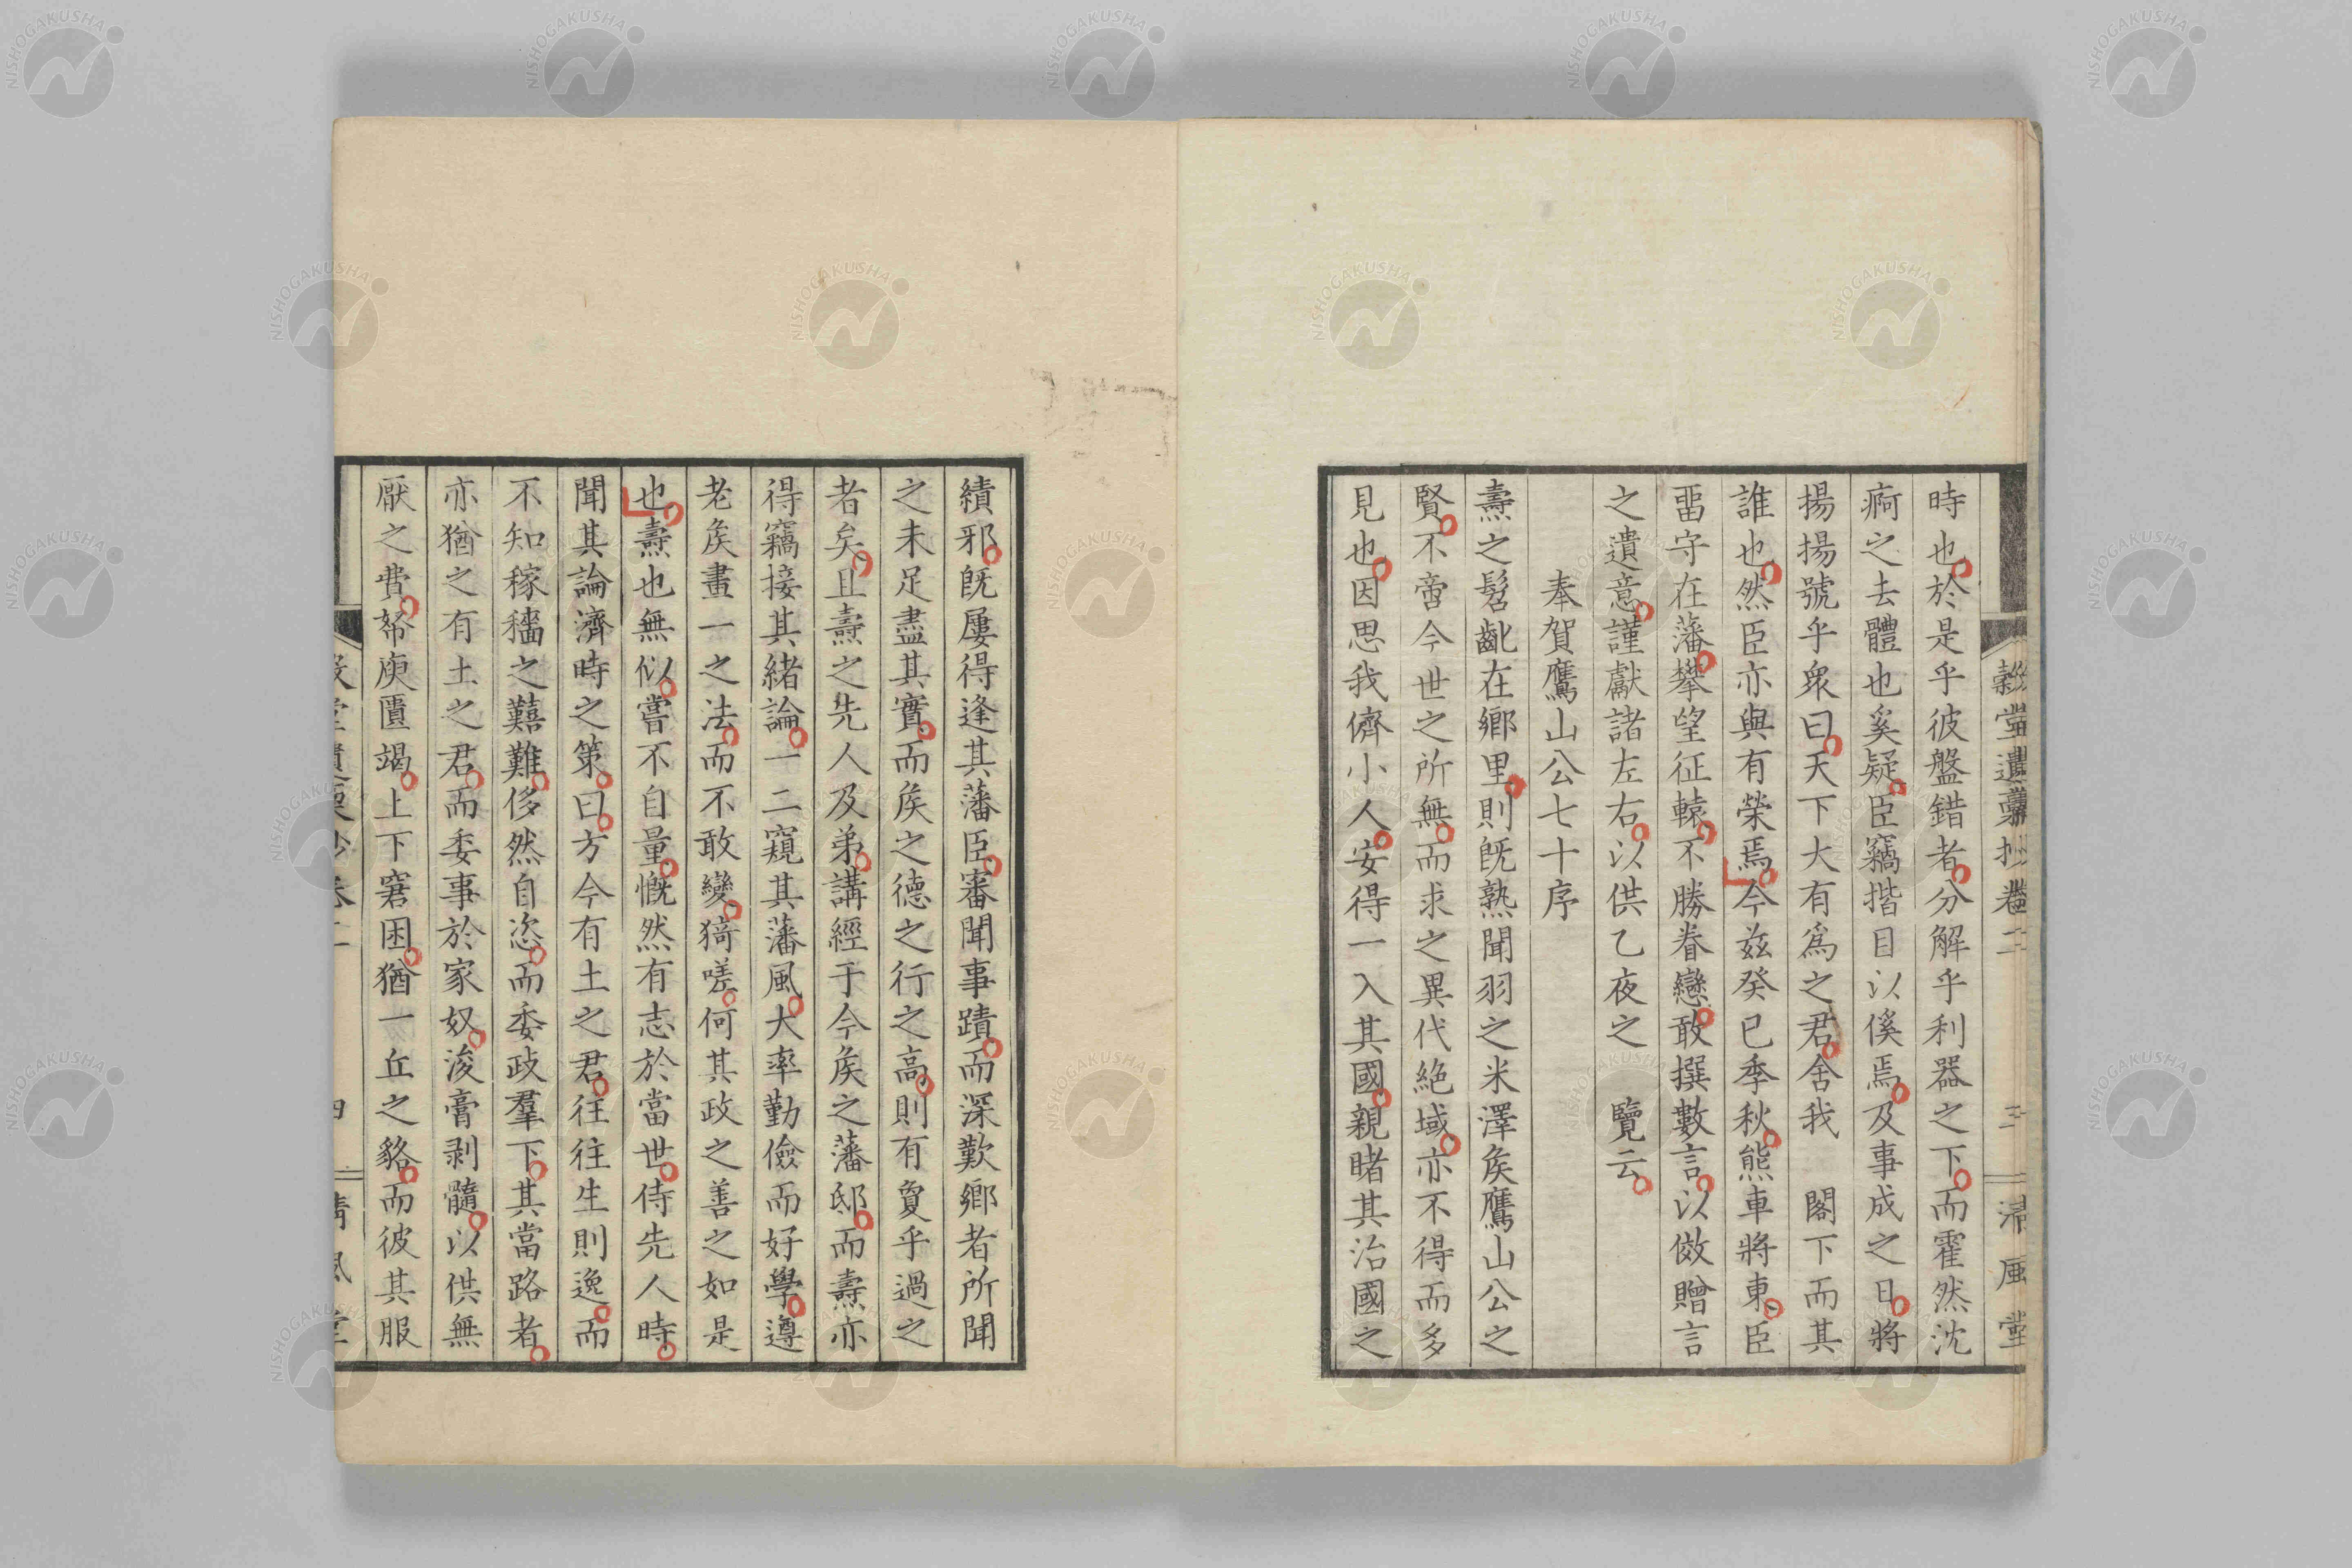 穀堂遺稾抄卷二 三 淸風堂
時也於是乎彼盤錯者分解乎利器之下而霍然沈
痾之去體也奚疑臣竊揩目以傒焉及事成之日將
揚揚號乎衆曰天下大有爲之君舍我 閤下而其
誰也然臣亦與有榮焉今玆癸巳季秋熊車將東臣
畱守在藩攀望征轅不勝眷戀敢撰數言以倣贈言
之遺意謹獻諸左右以供乙夜之 覽云
奉賀鷹山公七十序
壽之髫齔在鄉里則旣熟聞羽之米澤矦鷹山公之
賢不啻今世之所無而求之異代絶域亦不得而多
見也因思我儕小人安得一入其國親睹其治國之
績邪旣屢得逢其藩臣審聞事蹟而深歎鄉者所聞
之未足盡其實而矦之德之行之高則有敻乎過之
者矣且壽之先人及弟講經于今矦之藩邸而壽亦
得竊接其緖論一二窺其藩風大率勤儉而好學遵
老矦畫一之法而不敢變猗嗟何其政之善之如是
也壽也無似嘗不自量慨然有志於當世侍先人時
聞其論濟時之第曰方今有土之君往往生則逸而
不知稼穡之囏難侈然自恣而委政羣下其當路者
亦猶之有土之君而委事於家奴浚膏剥髓以供無
厭之費帑庾匱竭上下窘困猶一丘之貉而彼其服
穀堂遺稾抄卷二 四 淸風堂
NISHOGAKUSHA